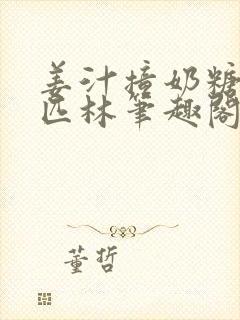 姜汁撞奶糖
匹林笔趣阁
董哲